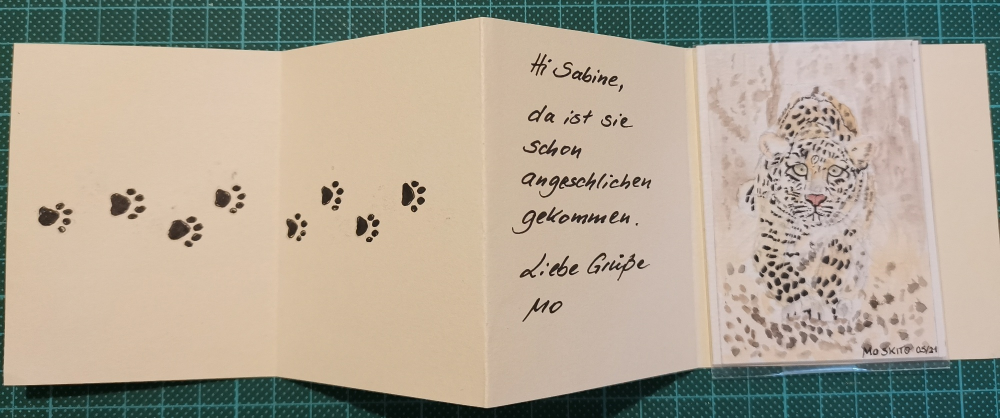 Hi Sabine,
da ist sie
schon
angeschlichen
gekommen.
Liebe Grüße
Mo
MOSKITO 05/21